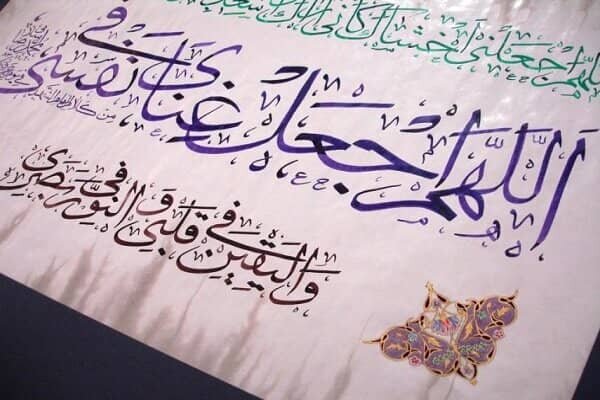 اللهم اجعلنی اخشاک کانی اراک
اللّهمّ اجعل غنای فی نفسی
والیقین فی قلبی و النور فی بصری